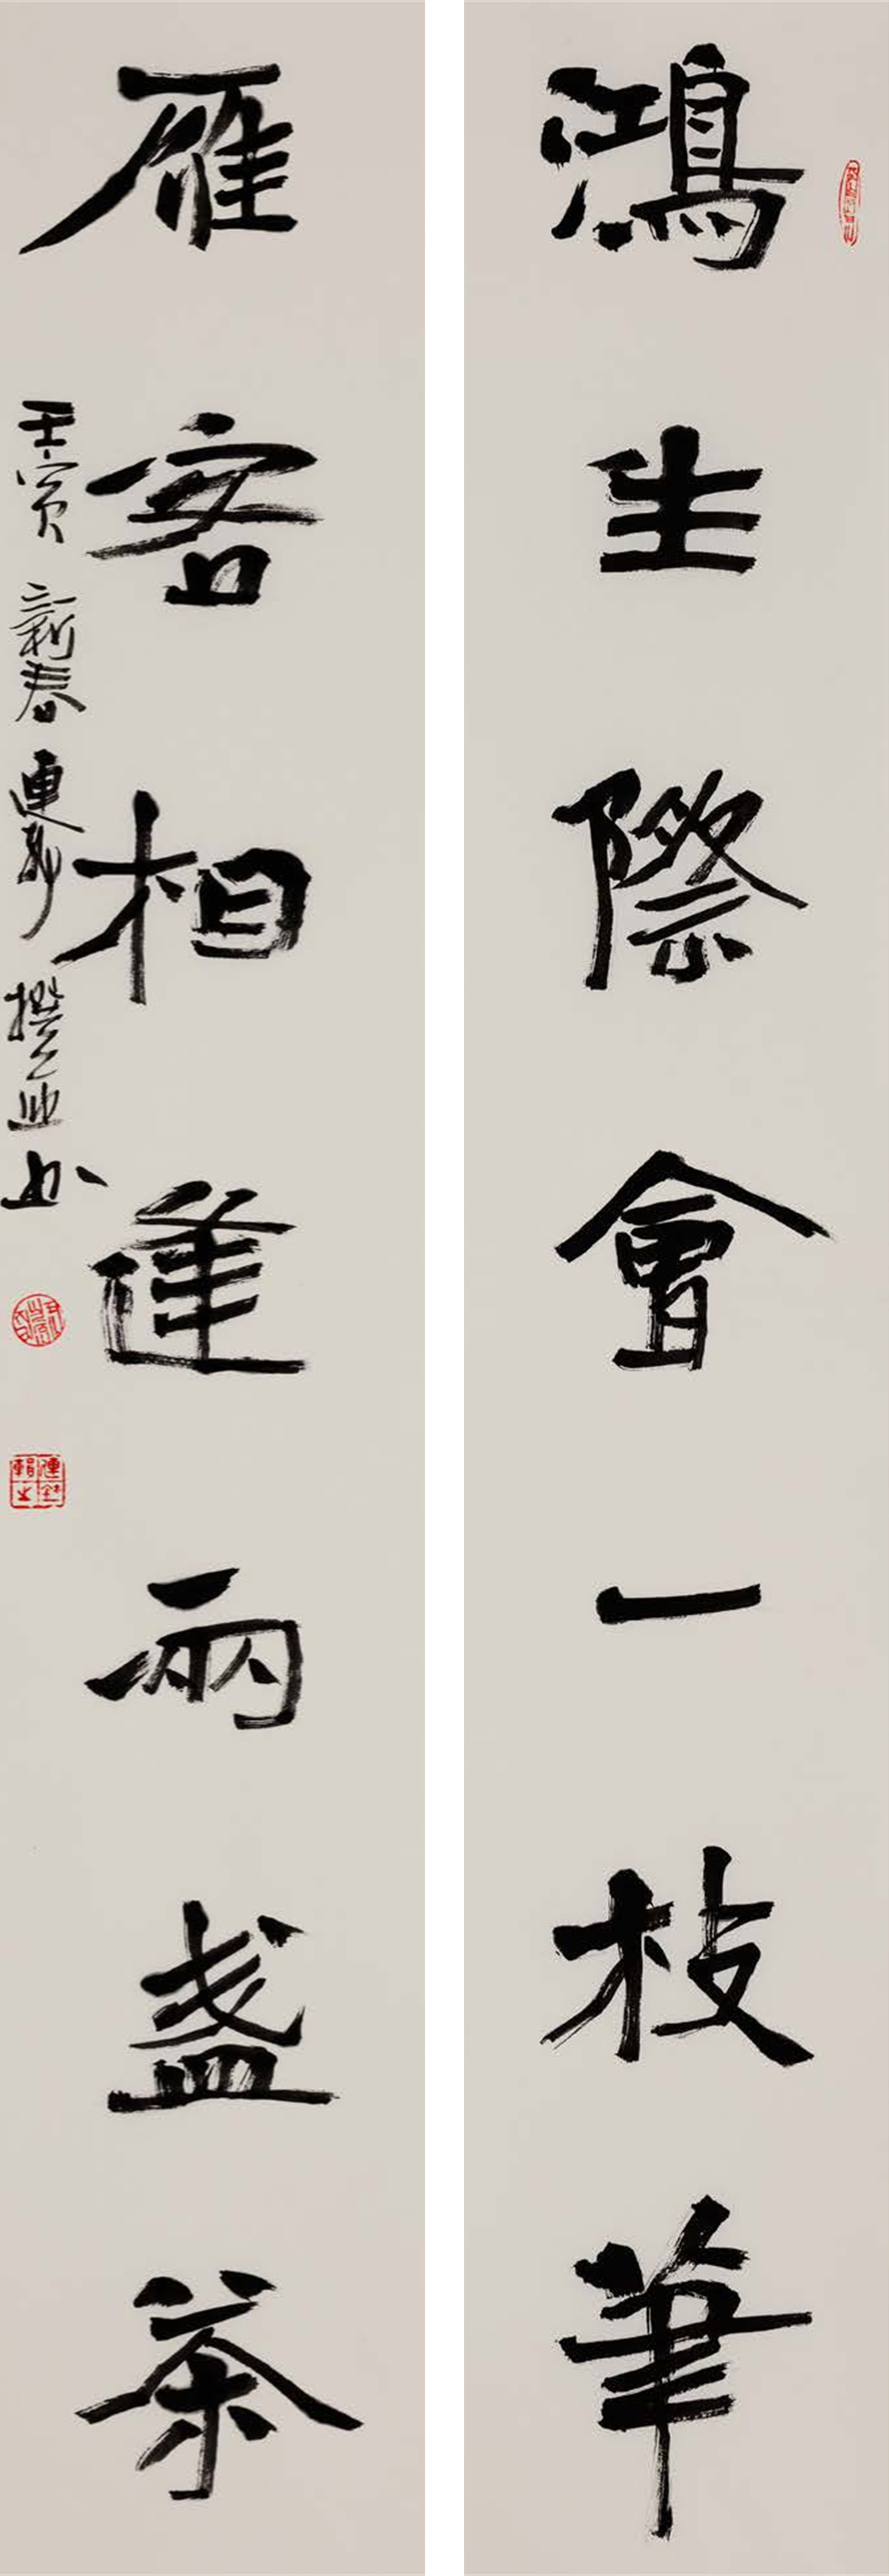 鴻生際會一枝筆
雁客相逢兩盞茶
壬寅新春連輯撰並书
連輯之鉨